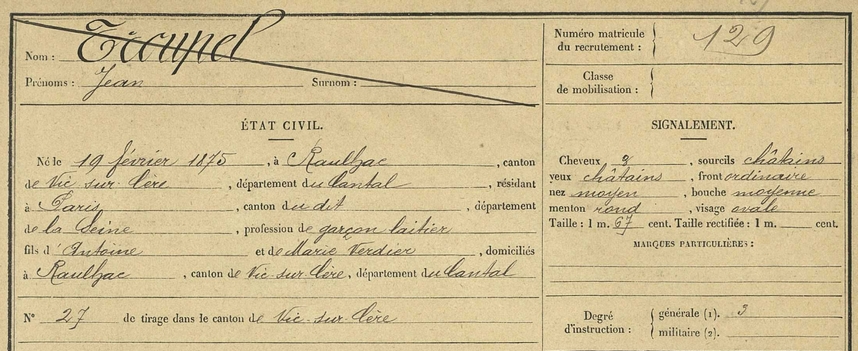 Nom : Troupel
Prénoms : Jean Surnom :
Numéro matricule du recrutement : 129
Classe de mobilisation :
ÉTAT CIVIL.
Né le 19 février 1875, à Raulhac, canton
de Vic-sur-Cère, département du Cantal, résidant
à Paris, canton du dit, département
de la Seine, profession de garçon laitier
fils d'Antoine et de Marie Verdier, domiciliés
à Raulhac, canton de Vic-sur-Cère, département du Cantal
N° 27 de tirage dans le canton de Vic-sur-Cère
SIGNALEMENT.
Cheveux &, sourcils châtains
yeux châtains, front ordinaire
nez moyen, bouche moyenne
menton rond, visage ovale
Taille : 1 m. 67 cent. Taille rectifiée : 1 m. cent.
MARQUES PARTICULIÈRES :
Degré d'instruction : générale (1). 3
militaire (2).